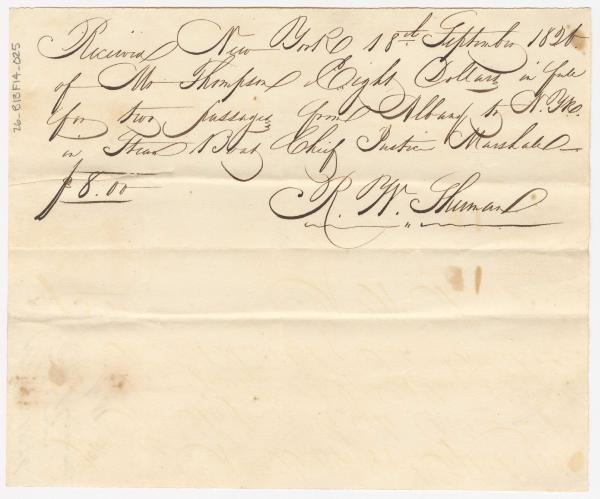 Received New York 18th September 1826
of Mr Thompson Eight Dollars in full
for two passages from Albany to N. Yk.
in Steam Boat Chief Justice Marshall
$8.00
R. W. Sherman
26-81BF14-025